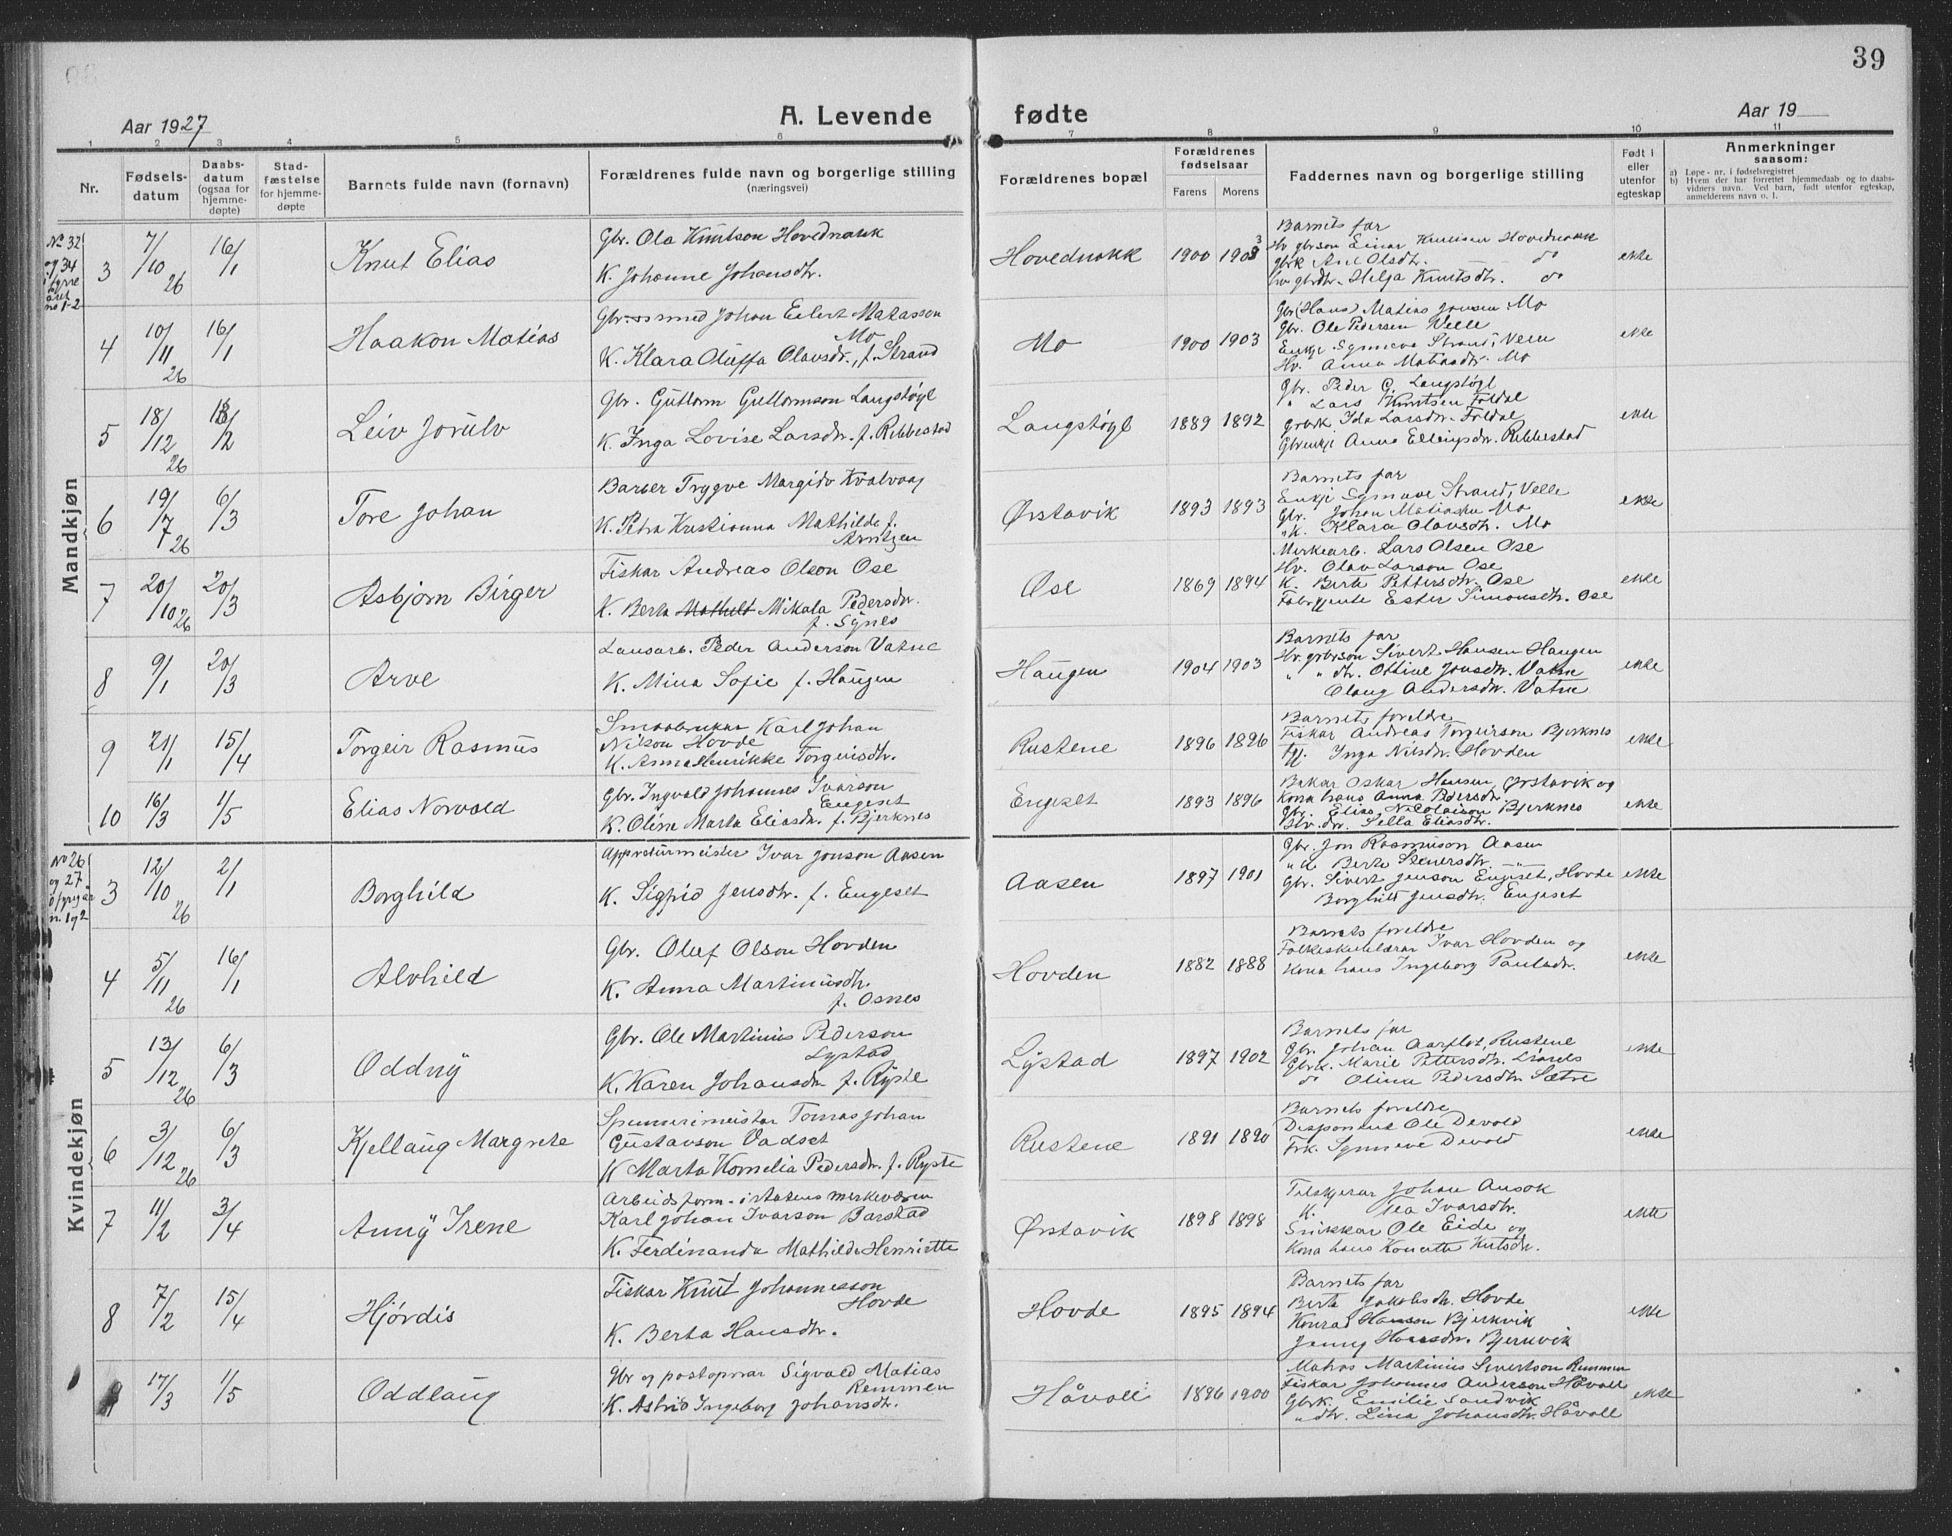 39
Aar 1927
A. Levende fødte
Aar 19
1 2 3 4 5 6 7 8 9 10 11
Nr.
Fødsels-
datum
Daabs-
datum
(ogsaa for
hjemme-
døpte)
Stad-
fæstelse
for hjemme-
døpte
Barnets fulde navn (fornavn)
Forældrenes fulde navn og borgerlige stilling
(næringsvei)
Forældrenes bopæl
Forældrenes
fødselsaar
Farens Morens
Faddernes navn og borgerlige stilling
Født i
eller
utenfor
egteskap
Anmerkninger
saasom:
a) Løpe-nr. i fødselsregistret
b) Hvem der har forrettet hjemmedaab og to daabs-
vidners navn. Ved barn, født utenfor egteskap,
anmelderens navn o. l.
Mandkjøn
No 32
og 34
fyrre
året
no 1-2
3
7/10 26
16/1
Knut Elias
Gbr. Ola Knutson Hovednakk
K. Johanne Johansdtr.
Hovednakk
1900 1903
Barnets far
Hv gbrson Einar Knutsen Hovednakk
gbrk Ane Olsdtr. do
hv gbrdtr. Helga Knutsdtr. do
ekte
4
10/11 26
16/1
Haakon Matias
Gbr. smed Johan Eilert Matiasson
Mo
K. Klara Oluffa Olavsdtr., f. Strand
Mo
1900 1903
Gbr (Hans) Matias Jonsen Mo
Gbr. Ole Pedersen Velle
Enkje Synneva Strand, Velle
Hv. Anna Matiasdtr. Mo
ekte
5
18/12 26
13/2
Leiv Jorulv
Gbr. Guttorm Guttormson Langstøyl
K. Inga Lovise Larsdtr. f. Ribbestad
Langstøyl
1889 1892
Gbr. Peder G. Langstøyl
" Lars Knutsen Foldal
gbrk Ida Larsdtr. Foldal
Gbrenkje Anna Ellingsdtr. Ribbestad
ekte
6
19/7 26
6/3
Tore Johan
Barber Trygve Margido Kvalvaag
K. Petra Kristianna Mathilde f.
Arntzen
Ørstavik
1893 1893
Barnets far
Enkje Synneve Strand, Velle
Gbr. Johan Matiassen Mo
" K. Klara Olavsdtr. Mo
ekte
7
20/10 26
20/3
Asbjørn Birger
Fiskar Andreas Olson Ose
K. Berta Mathild Mikala Pedersdtr.
f. Synes
Ose
1869 1894
Merkearb. Lars Olsen Ose
Hv. Olav Larson Ose
K. Berte Pettersdtr. Ose
Fabrgjente Ester Simonsdtr. Ose
ekte
8
9/1
20/3
Arve
Lausarb. Peder Anderson Vatne
K. Mina Sofie f. Haugen
Haugen
1904 1903
Barnets far
Hv. gbrson Sivert Hansen Haugen
" " dtr. Ottine Jonsdtr. Vatne
Olaug Andersdtr. Vatne
ekte
9
21/1
15/4
Torgeir Rasmus
Smaabrukar Karl Johan
Nilson Hovde
K. Anna Henrikke Torgeirsdtr.
Rustene
1896 1896
Barnets foreldre
Fiskar Andreas Torgeirson Bjerknes
Tj. Inga Nilsdtr. Hovden
ekte
10
16/3
1/5
Elias Norvald
Gbr. Ingvald Johannes Ivarson
Engeset
K. Oline Marta Eliasdtr. f. Bjerknes
Engeset
1893 1896
Bakar Oskar Hansen, Ørstavik og
Kona hans Anna Pedersdtr.
Gbr. Elias Nicolaison Bjerknes
Gbr. dtr. Sella Eliasdtr.
ekte
Kvindekjøn
No 26
og 27
3
12/10 26
2/1
Borghild
Appreturmeister Ivar Jonson Aasen
K. Sigrid Jensdtr. f. Engeset
Aasen
1897 1901
Gbr. Jon Rasmuson Aasen
" K. Berte Steuersdtr. "
Gbr. Sivert Jenson Engeset, Hovde
Borghild Jensdtr. Engeset
ekte
4
5/11 26
16/1
Alvhild
Gbr. Oluf Olson Hovden
K. Anna Martinusdtr.
f. Osnes
Hovden
1882 1888
Barnets foreldre
Folkeskulelærar Ivar Hovden og
Kona hans Ingeborg Paulsdtr.
ekte
5
13/12 26
6/3
Oddny
Gbr. Ole Martinus Pederson
Lystad
K. Karen Johansdtr f. Ryste
Lystad
1897 1902
Barnets far
Gbr. Johan Aarflot, Rustene
Gbrk. Marie Pettersdtr. Lianes
do Olina Pedersdtr. Sætre
ekte
6
3/12 26
6/3
Kjellaug Margrete
Spinnerimeistar Tomas Johan
Gustavson Vadset
K Marta Kornelia Pedersdtr. f. Ryste
Rustene
1891 1890
Barnets foreldre
Disponent Ole Devold
Frk. Synneve Devold
ekte
7
11/2
3/4
Anny Irene
Arbeidsform. i Statens merkeværn
Karl Johan Ivarson Barstad
K. Ferdinanda Mathilde Henriette
Ørstavik
1898 1898
Tilskjerar Johan Ansok
K. Tea Ivarsdtr.
Snikkar Ole Eide og
Kona hans Konsette Knutsdtr.
ekte
8
7/2
15/4
Hjørdis
Fiskar Knut Johannesson
Hovde
K. Berta Hansdtr.
Hovde
1895 1894
Barnets far
Berte Jakobsdtr. Hovde
Konrad Hansson Bjerkvik
Jenny Hansdtr. Bjerkvik
ekte
9
17/3
1/5
Oddlaug
Gbr og postopnar Sigvald Matias
Remmen
K. Astrid Ingeborg Johansdtr.
Håvoll
1896 1900
Matros Martinus Sivertson Remmen
Fiskar Johannes Anderson Håvoll
Gbrk. Emilie Sandvik
" dtr. Lina Johansdtr. Håvoll
ekte